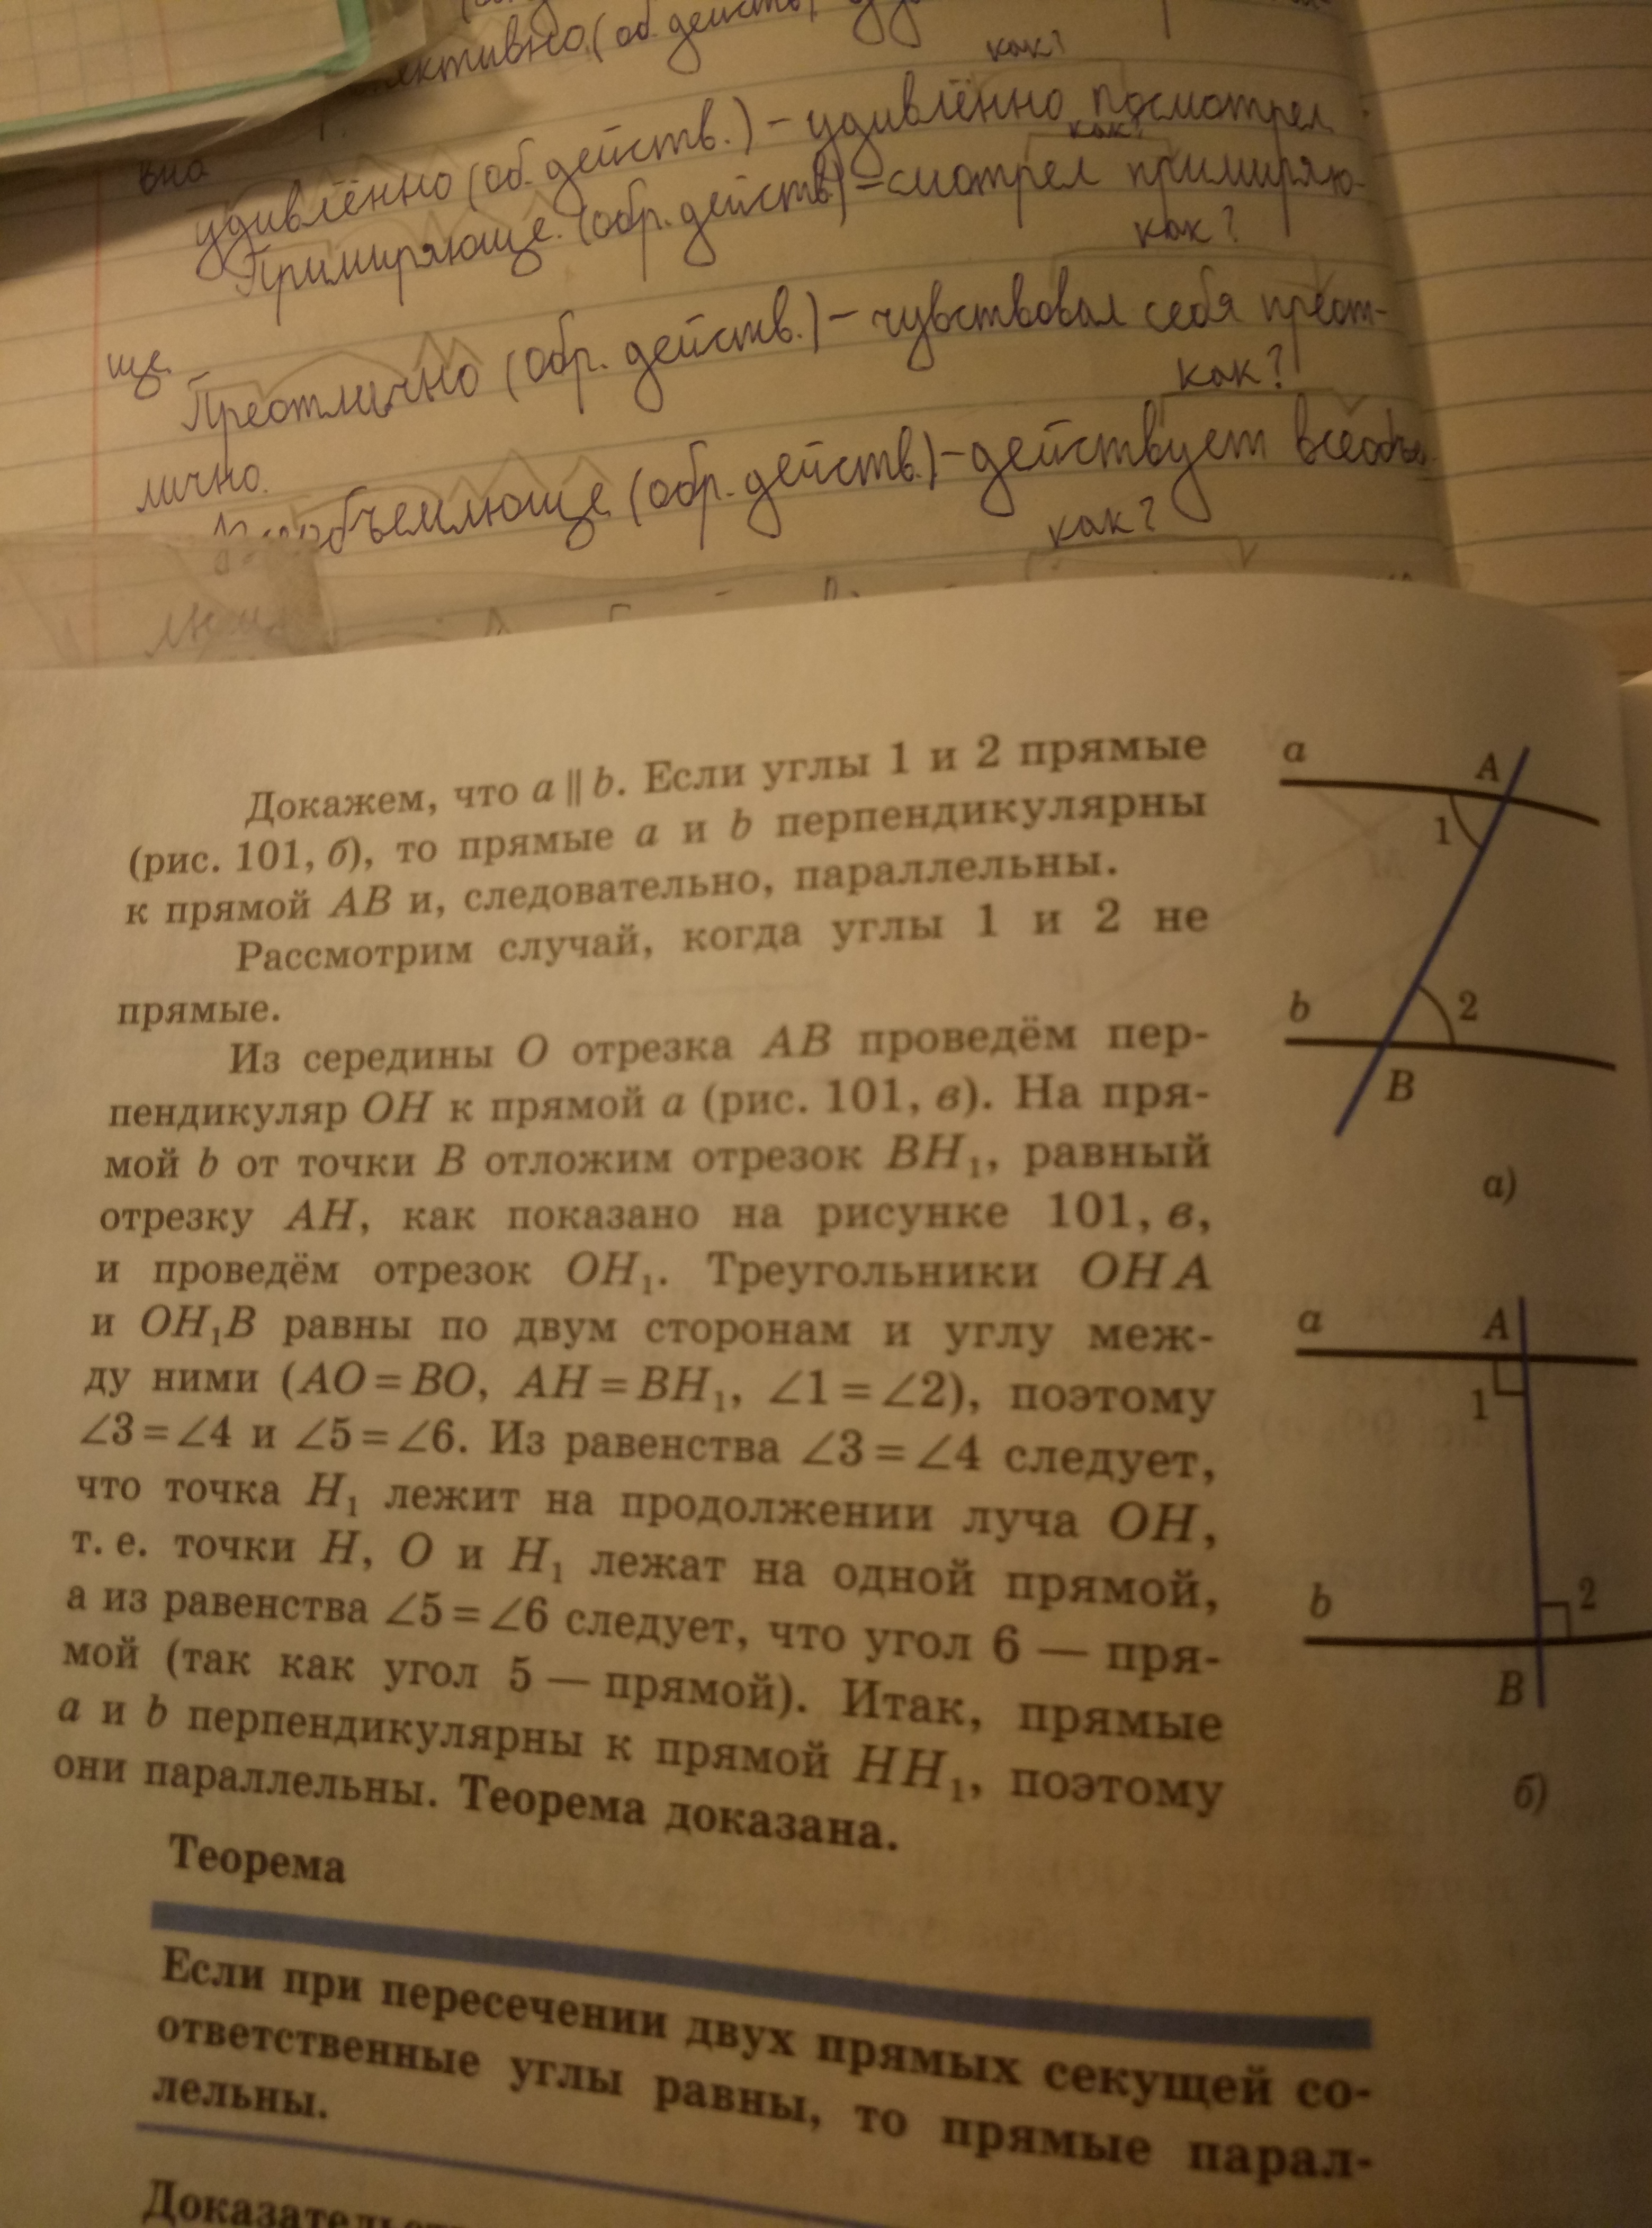 удивлённо (об. действ.) – удивлённо посмотрел
как?
Примиряюще (обр. действ.) – смотрел примиряю-
как?
ще
как?
Преотлично (обр. действ.) – чувствовал себя преот-
как?
лично.
(обр. действ.) – действует
как?
Докажем, что a ∥ b. Если углы 1 и 2 прямые
(рис. 101, б), то прямые a и b перпендикулярны
к прямой AB и, следовательно, параллельны.
Рассмотрим случай, когда углы 1 и 2 не
прямые.
Из середины O отрезка AB проведём пер-
пендикуляр OH к прямой a (рис. 101, в). На пря-
мой b от точки B отложим отрезок BH₁, равный
отрезку AH, как показано на рисунке 101, в,
и проведём отрезок OH₁. Треугольники OHA
и OH₁B равны по двум сторонам и углу меж-
ду ними (AO = BO, AH = BH₁, ∠1 = ∠2), поэтому
∠3 = ∠4 и ∠5 = ∠6. Из равенства ∠3 = ∠4 следует,
что точка H₁ лежит на продолжении луча OH,
т. е. точки H, O и H₁ лежат на одной прямой,
а из равенства ∠5 = ∠6 следует, что угол 6 — пря-
мой (так как угол 5 — прямой). Итак, прямые
a и b перпендикулярны к прямой HH₁, поэтому
они параллельны. Теорема доказана.
Теорема
Если при пересечении двух прямых секущей со-
ответственные углы равны, то прямые парал-
лельны.
a
A
1
b
2
B
а)
a
A
1
b
2
B
б)